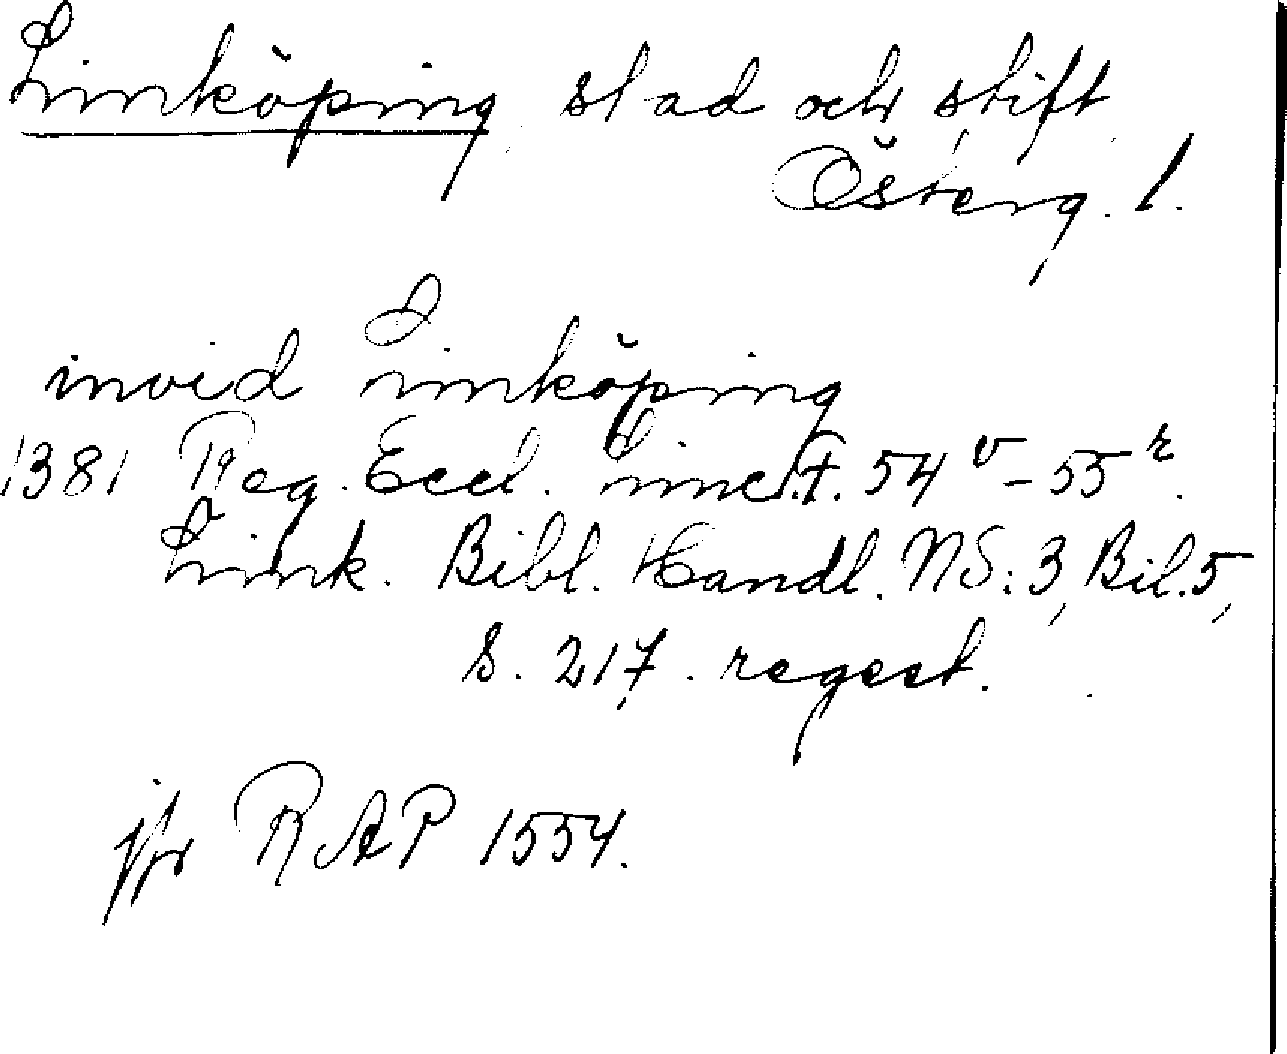 Linköping stad och stift
Österg. l.
invid Linköping
1381 Reg. Eccl. Linc. f. 54 v - 55 r.
Link. Bibl. Handl. NS. 3, Bil. 5,
S. 217. regest.
jfr RAP 1554.